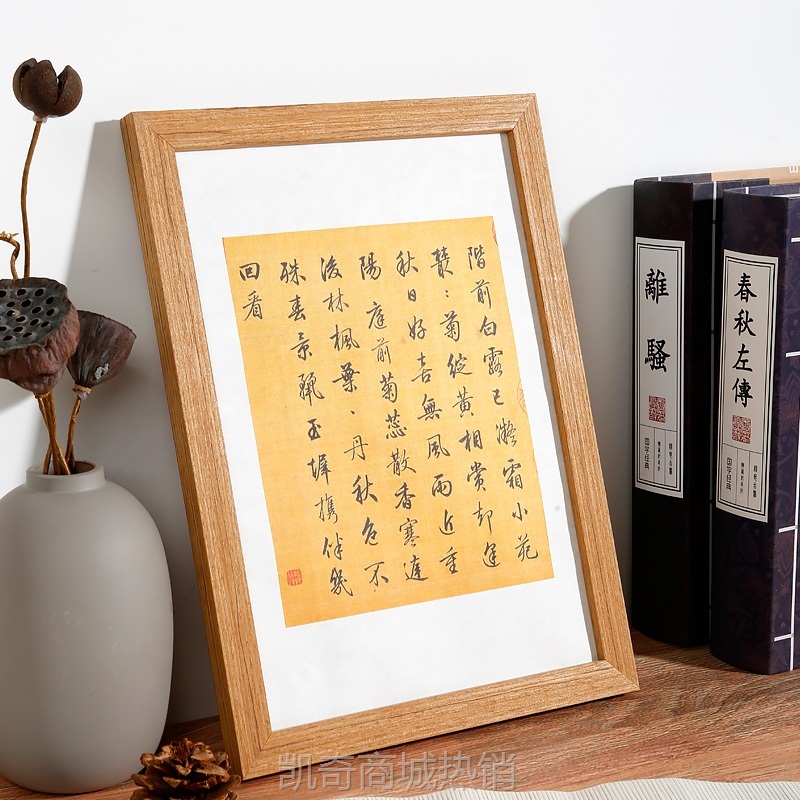 階前白露已凝霜小苑
叢：菊綻黃相賞却逢
秋日好喜無風雨近重
陽庭前菊蕊散香寒遠
後林楓葉、丹秋色不
殊春景麗玉墀攜伴幾
回看
離騷
國學經典
春秋左傳
國學經典
凯奇商城热销